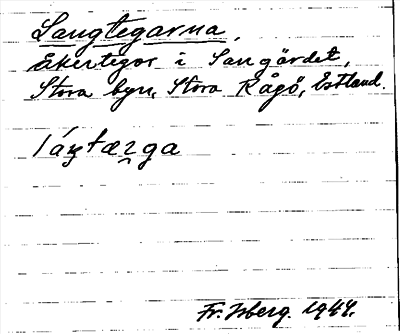 Langtegarna,
åkertegar i Langärdet,
Stora byn, Stora Rågö, Estland.
láŋtæꝛga
Fr. Isberg 1944.